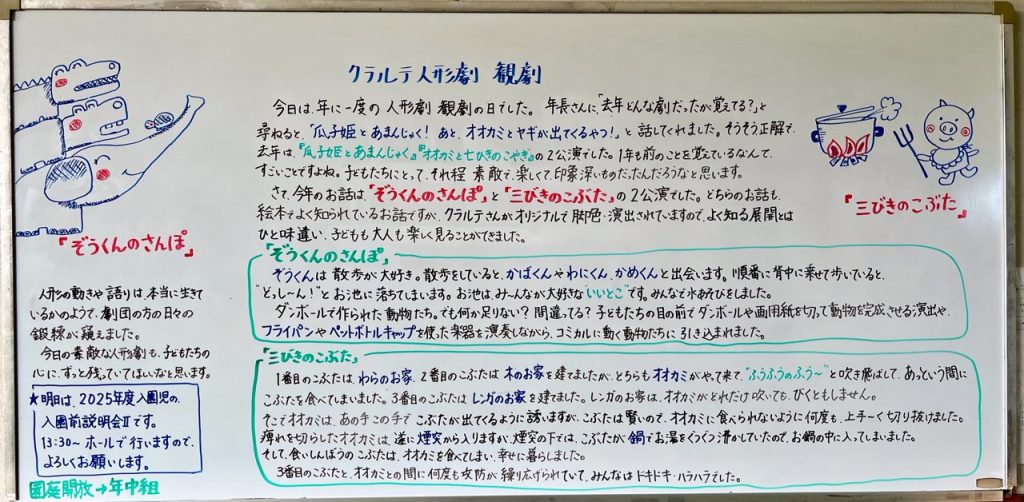 クラルテ人形劇 観劇
今日は、年に一度の 人形劇 観劇の日でした。 年長さんに、「去年どんな劇だったか覚えてる?」と
尋ねると、「瓜子姫とあまんじゃく! あと、オオカミとヤギが出てくるやつ!」と 話してくれました。そうそう正解で、
去年は、『瓜子姫とあまんじゃく』『オオカミと七ひきのこやぎ』の2公演でした。1年も前のことを覚えているなんて、
すごいことですよね。子どもたちにとって、それ程 素敵で、楽しくて、印象深いものだったんだろうなと思います。
さて、今年のお話は、『ぞうくんのさんぽ』と『三びきのこぶた』の2公演でした。どちらのお話も、
絵本でよく知られているお話ですが、クラルテさんがオリジナルで脚色・演出されていますので、よく知る展開とは
ひと味違い、子どもも大人も楽しく見ることができました。
『ぞうくんのさんぽ』
『三びきのこぶた』
人形の動きや語りは、本当に生きて
いるかのようで、劇団の方の日々の
鍛練が窺えました。
今日の素敵な人形劇も、子どもたちの
心に、ずっと残っていてほしいなと思います。
★明日は、2025年度入園児の、
入園前説明会Ⅱです。
13:30~ ホールで行いますので、
よろしくお願いします。
園庭開放→年中組
『ぞうくんのさんぽ』
ぞうくんは 散歩が大好き。散歩をしていると、かばくんやわにくん、かめくんと出会います。順番に背中に乗せて歩いていると、
"どっし~ん!"とお池に落ちてしまいます。お池は、み~んなが大好きな"いいとこ"です。みんなで水あそびをしました。
ダンボールで作られた動物たち。でも何か足りない?間違ってる?子どもたちの目の前でダンボールや画用紙を切って動物を完成させる演出や、
フライパンやペットボトルキャップを使った楽器を演奏しながら、コミカルに動く動物たちに 引き込まれました。
『三びきのこぶた』
1番目のこぶたは、わらのお家、2番目のこぶたは 木のお家を建てましたが、どちらも オオカミがやって来て、"ふうふうのふう~"と吹き飛ばして、あっという間に
こぶたを食べてしまいました。3番目のこぶたは レンガのお家を建てました。レンガのお家は、オオカミがどれだけ吹いても、びくともしません。
そこでオオカミは、あの手この手で こぶたが出てくるように誘いますが、こぶたは賢いので、オオカミに食べられないように何度も、上手~く切り抜けました。
痺れを切らしたオオカミは、遂に煙突から入りますが、煙突の下では、こぶたが鍋でお湯をぐつぐつ沸かしていたので、お鍋の中に入ってしまいました。
そして、食いしんぼうのこぶたは、オオカミを食べてしまい、幸せに暮らしました。
3番目のこぶたと、オオカミとの間に何度も攻防が繰り広げられていて、みんなはドキドキ・ハラハラでした。